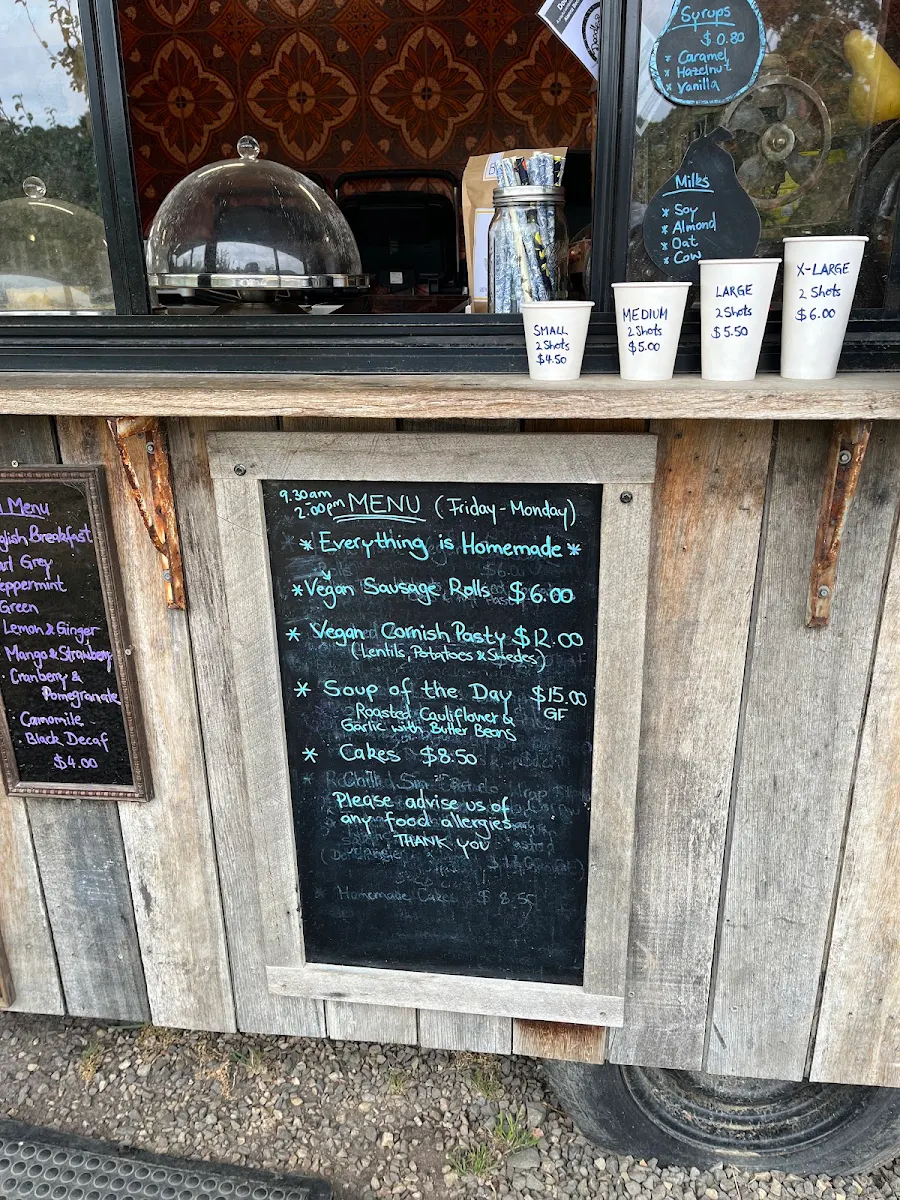 Syrups
$0.80
* Caramel
* Hazelnut
* Vanilla
Milks
* Soy
* Almond
* Oat
* Cow
SMALL
2 Shots
$4.50
MEDIUM
2 Shots
$5.00
LARGE
2 Shots
$5.50
X-LARGE
2 Shots
$6.00
Menu
Breakfast
Grey
Peppermint
Green
Lemon & Ginger
Mango & Strawberry
Cranberry &
Pomegranate
Camomile
Black Decaf
$4.00
9.30am
2.00pm MENU (Friday - Monday)
* Everything is Homemade *
* Vegan Sausage Rolls $6.00
* Vegan Cornish Pasty $12.00
(Lentils, Potatoes & Swedes)
* Soup of the Day $15.00
Roasted Cauliflower & GF
Garlic with Butter Beans
* Cakes $8.50
Please advise us of
any food allergies
THANK YOU
* Homemade Cakes $8.50